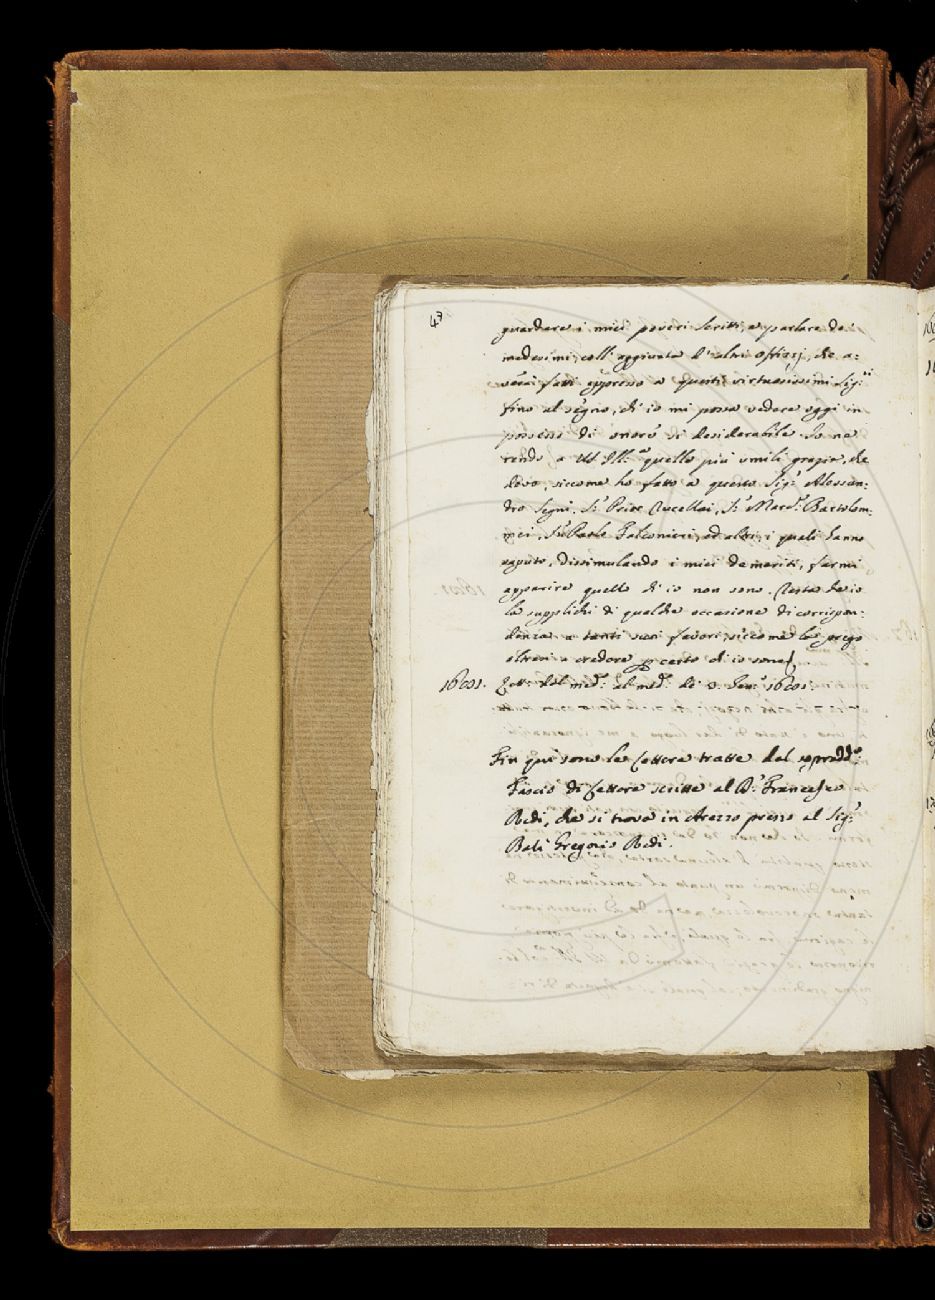 47
guardare i miei poveri scritti, e parlare de'
medesimi, coll' aggiunta d' altri offizzj, che a:
verà fatti appresso a questi virtuosissimi Sig:ri
fino al segno, di io mi possa vedere oggi in
possesso di onore sì desiderabile. Io ne
rendo a VS. Ill:a quelle più umili grazie, che
devo, siccome ho fatto a questo Sig:r Alessan:
dro Segni, S:r Prior Rucellai, S:r March:e Bartolom:
mei, S:r Paolo Falconieri, ed altri, i quali hanno
saputo, dissimulando i miei demeriti, farmi
apparire quello di io non sono. Resta che io
la supplichi di qualche occasione di corrispon:
denza a tanti suoi favori, siccome la prego
altresì a credere p certo di io sono
Lett: del med: al med: de' 2. Gen:
Fin qui sono le Lettere tratte dal
Fascio di Lettere scritte al D:r Francesco
Redi, che si trova in Arezzo presso al Sig:r
Balì Gregorio Redi.